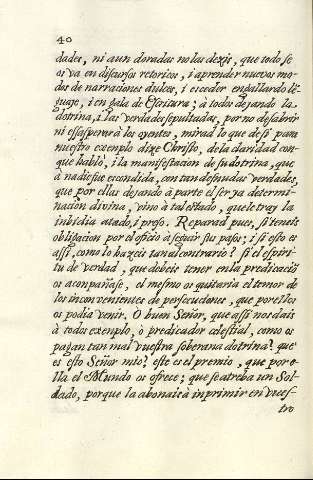 40
dades, ni aun doradas no las dezis, que todo se
os va en discursos retoricos, i aprender nuevos mo-
dos de narraciones dulces, i exceder en gallardo lē-
guaje, i en gala de Escritura; à todos dejando la
dotrina, i las verdades sepultadas, por no desabrir
ni essasperar à los oyentes, mirad lo que de sí para
nuestro exemplo dize Christo, de la claridad con-
que hablò, i la manifestacion de su dotrina, que
à nadie fue escondida, con tan desnudas verdades,
que por ellas dejando à parte el ser ya determi-
nacion divina, vino à tal estado, que le tray la
inbidia atado, i preso. Reparad pues, si teneis
obligacion por el oficio à seguir sus pasos; i si esto es
assi, como lo hazeis tan al contrario? si el espiri-
tu de verdad, que debeis tener en la predicaciō
os acompañase, el mesmo os quitaria el temor de
los inconvenientes de persecuciones, que por ellos
os podia venir. O buen Señor, que assi nos dais
à todos exemplo, ò predicador celestial, como os
pagan tan mal vuestra soberana dotrina? que
es esto Señor mio? este es el premio, que por e-
lla el Mundo os ofrece; que se atreba un Sol-
dado, porque la abonais à inprimir en vues-
tro